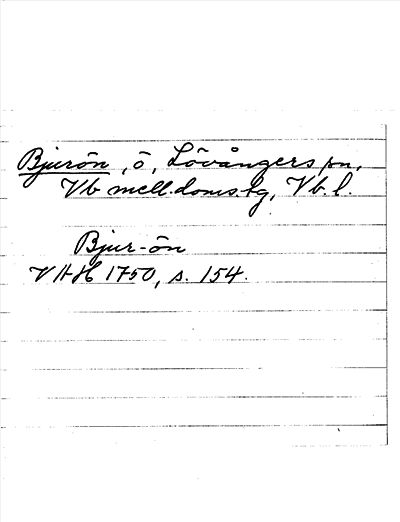 Bjurön, ö, Lövångers sn,
Vb mell. doms.tg, Vb. l.
Bjur-ön
VAH 1750, s. 154.